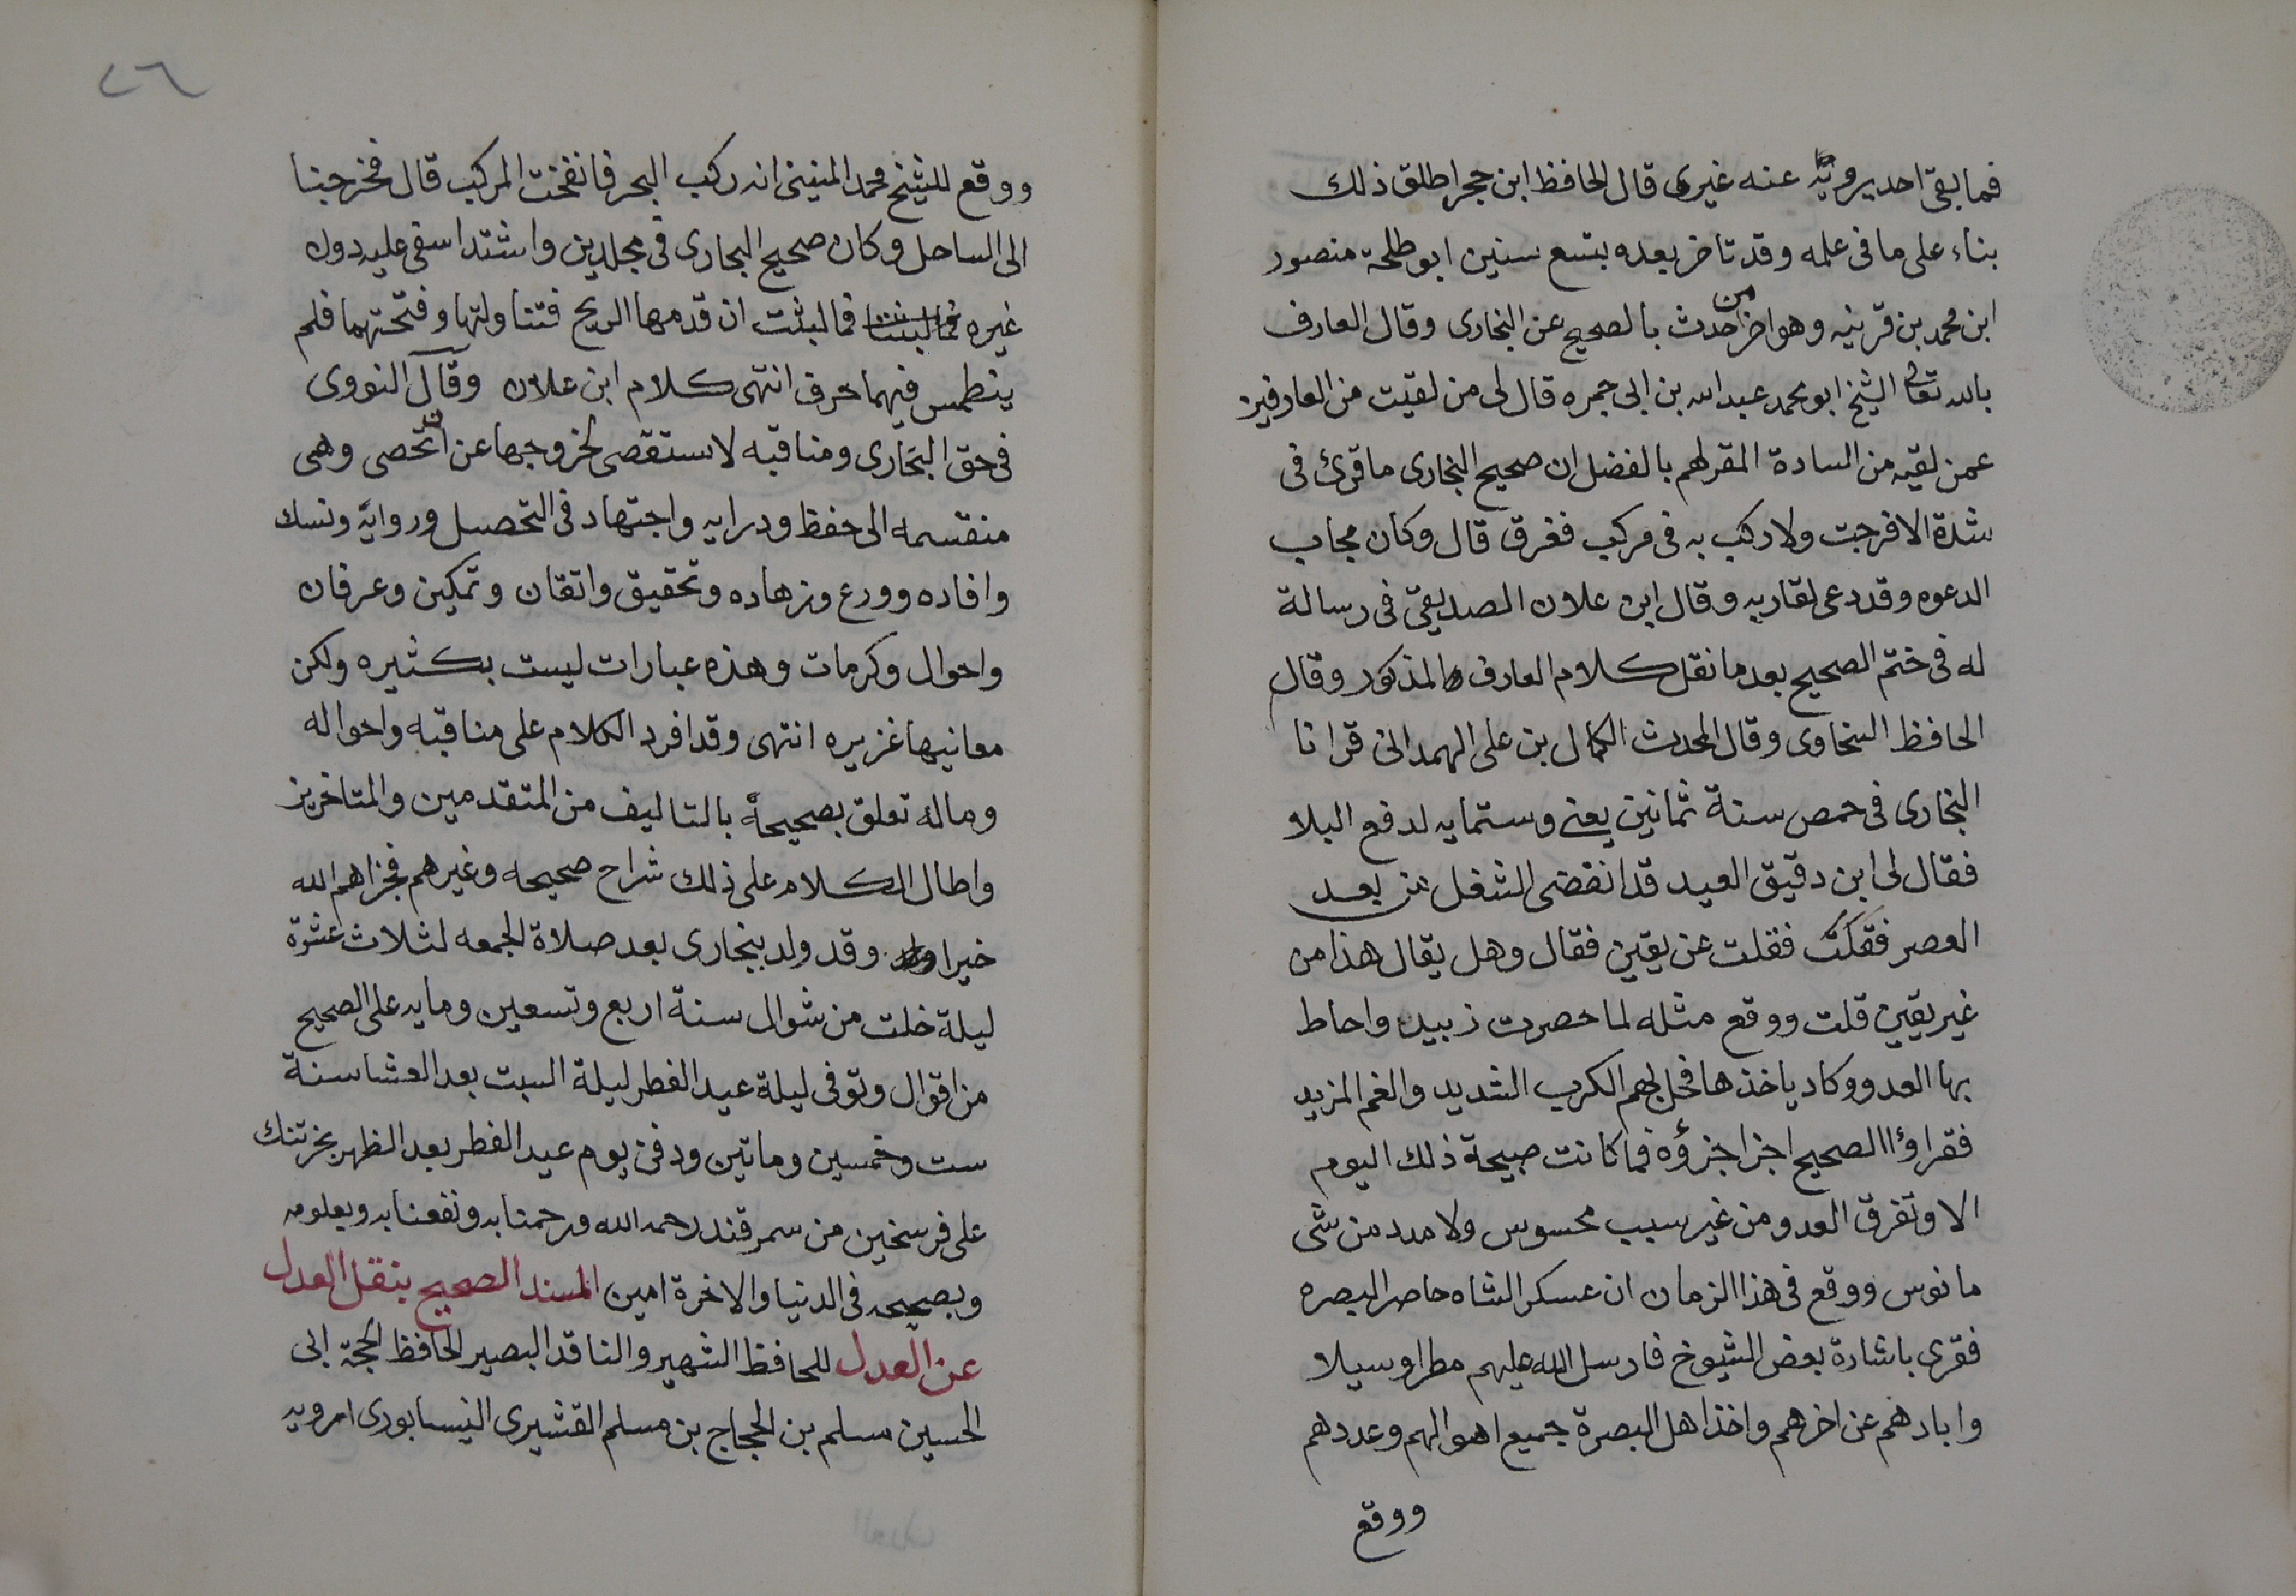 فما بقى احد يرويه عنه غيرى قال الحافظ ابن حجر اطلق ذلك
بناء على ما فى علمه وقد تاخر بعده بتسع سنين ابو طلحة منصور
ابن محمد بن قرينيه وهو اخر من حدث بالصحيح عن البخارى وقال العارف
بالله تعالى الشيخ ابو محمد عبد الله بن ابى جمره قال لى من لقيت من العارفين
عمن لقيه من السادة المقر لهم بالفضل ان صحيح البخارى ما قرئ فى
شدة الا فرجت ولا ركب به فى مركب فغرق قال وكان مجاب
الدعوه وقد دعى لقاريه وقال ابن علان الصديقى فى رسالة
له فى ختم الصحيح بعد ما نقل كلام العارف المذكور وقال
الحافظ السخاوى وقال المحدث الكمال بن على الهمدانى قرانا
البخارى فى حمص سنة ثمانين يعنى وستمايه لدفع البلا
فقال لى ابن دقيق العيد قد انقضى الشغل من بعد
العصر فقلت عن يقين فقال وهل يقال هذا من
غير يقين قلت ووقع مثله لما حصرت زبيد واحاط
بها العدو وكاد ياخذها فحل بهم الكرب الشديد والغم المزيد
فقراؤا الصحيح اجزا جزؤه فما كانت صبيحة ذلك اليوم
الا وتفرق العدو من غير سبب محسوس ولا مدد من شى
مانوس ووقع فى هذا الزمان ان عسكر الشاه حاصر البصره
فقرى باشارة بعض الشيوخ فارسل الله عليهم مطرا وسيلا
وابادهم عن اخرهم واخذ اهل البصرة جميع اموالهم وعددهم
ووقع
٢٦
ووقع للشيخ محمد المنينى انه ركب البحر فانفخت المركب قال فخرجنا
الى الساحل وكان صحيح البخارى فى مجلدين واشتد اسفى عليه دون
غيره فما لبثنا فما لبثت ان قدمها الريح فتناولتها وفتحتهما فلم
ينطمس فيهما حرف انتهى كلام ابن علان وقال النووى
فى حق البخارى ومناقبه لا تستقصى لخروجها عن ان تحصى وهى
منقسمه الى حفظ ودرايه واجتهاد فى التحصيل ورواية ونسك
وافاده وورع وزهاده وتحقيق واتقان وتمكين وعرفان
واحوال وكرمات وهذه عبارات ليست بكثيره ولكن
معانيها غزيره انتهى وقد افرد الكلام على مناقبه واحواله
وماله تعلق بصحيحه بالتاليف من المتقدمين والمتاخرين
واطال الكلام على ذلك شراح صحيحه وغيرهم فجزاهم الله
خيرا وقد ولد ببخارى بعد صلاة الجمعه لثلاث عشرة
ليلة خلت من شوال سنة اربع وتسعين ومايه على الصحيح
من اقوال وتوفى ليلة عيد الفطر ليلة السبت بعد العشا سنة
ست وخمسين وماتين ودفن يوم عيد الفطر بعد الظهر بخرتنك
على فرسخين من سمرقند رحمه الله ورحمنا به ونفعنا به وبعلومه
وبصحيحه فى الدنيا والاخرة امين المسند الصحيح بنقل العدل
عن العدل للحافظ الشهير والناقد البصير الحافظ الحجة ابى
الحسين مسلم بن الحجاج بن مسلم القشيرى النيسابورى ارويه